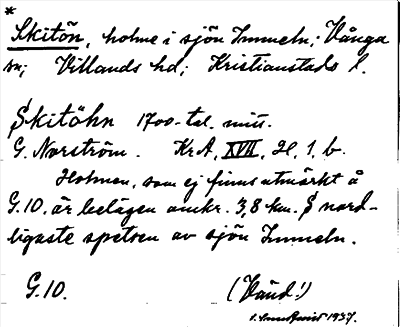 *
Skitön, holme i sjön Immeln; Vånga
sn; Villands hd; Kristianstads l.
Skitöhn 1700-tal. mitt.
G. Norström. Kr A, XVII, H. 1. b.
Holmen, som ej finns utmärkt å
G.10. är belägen omkr. 3,8 km. S nord-
ligaste spetsen av sjön Immeln.
G.10. (Vänd!)
1937.